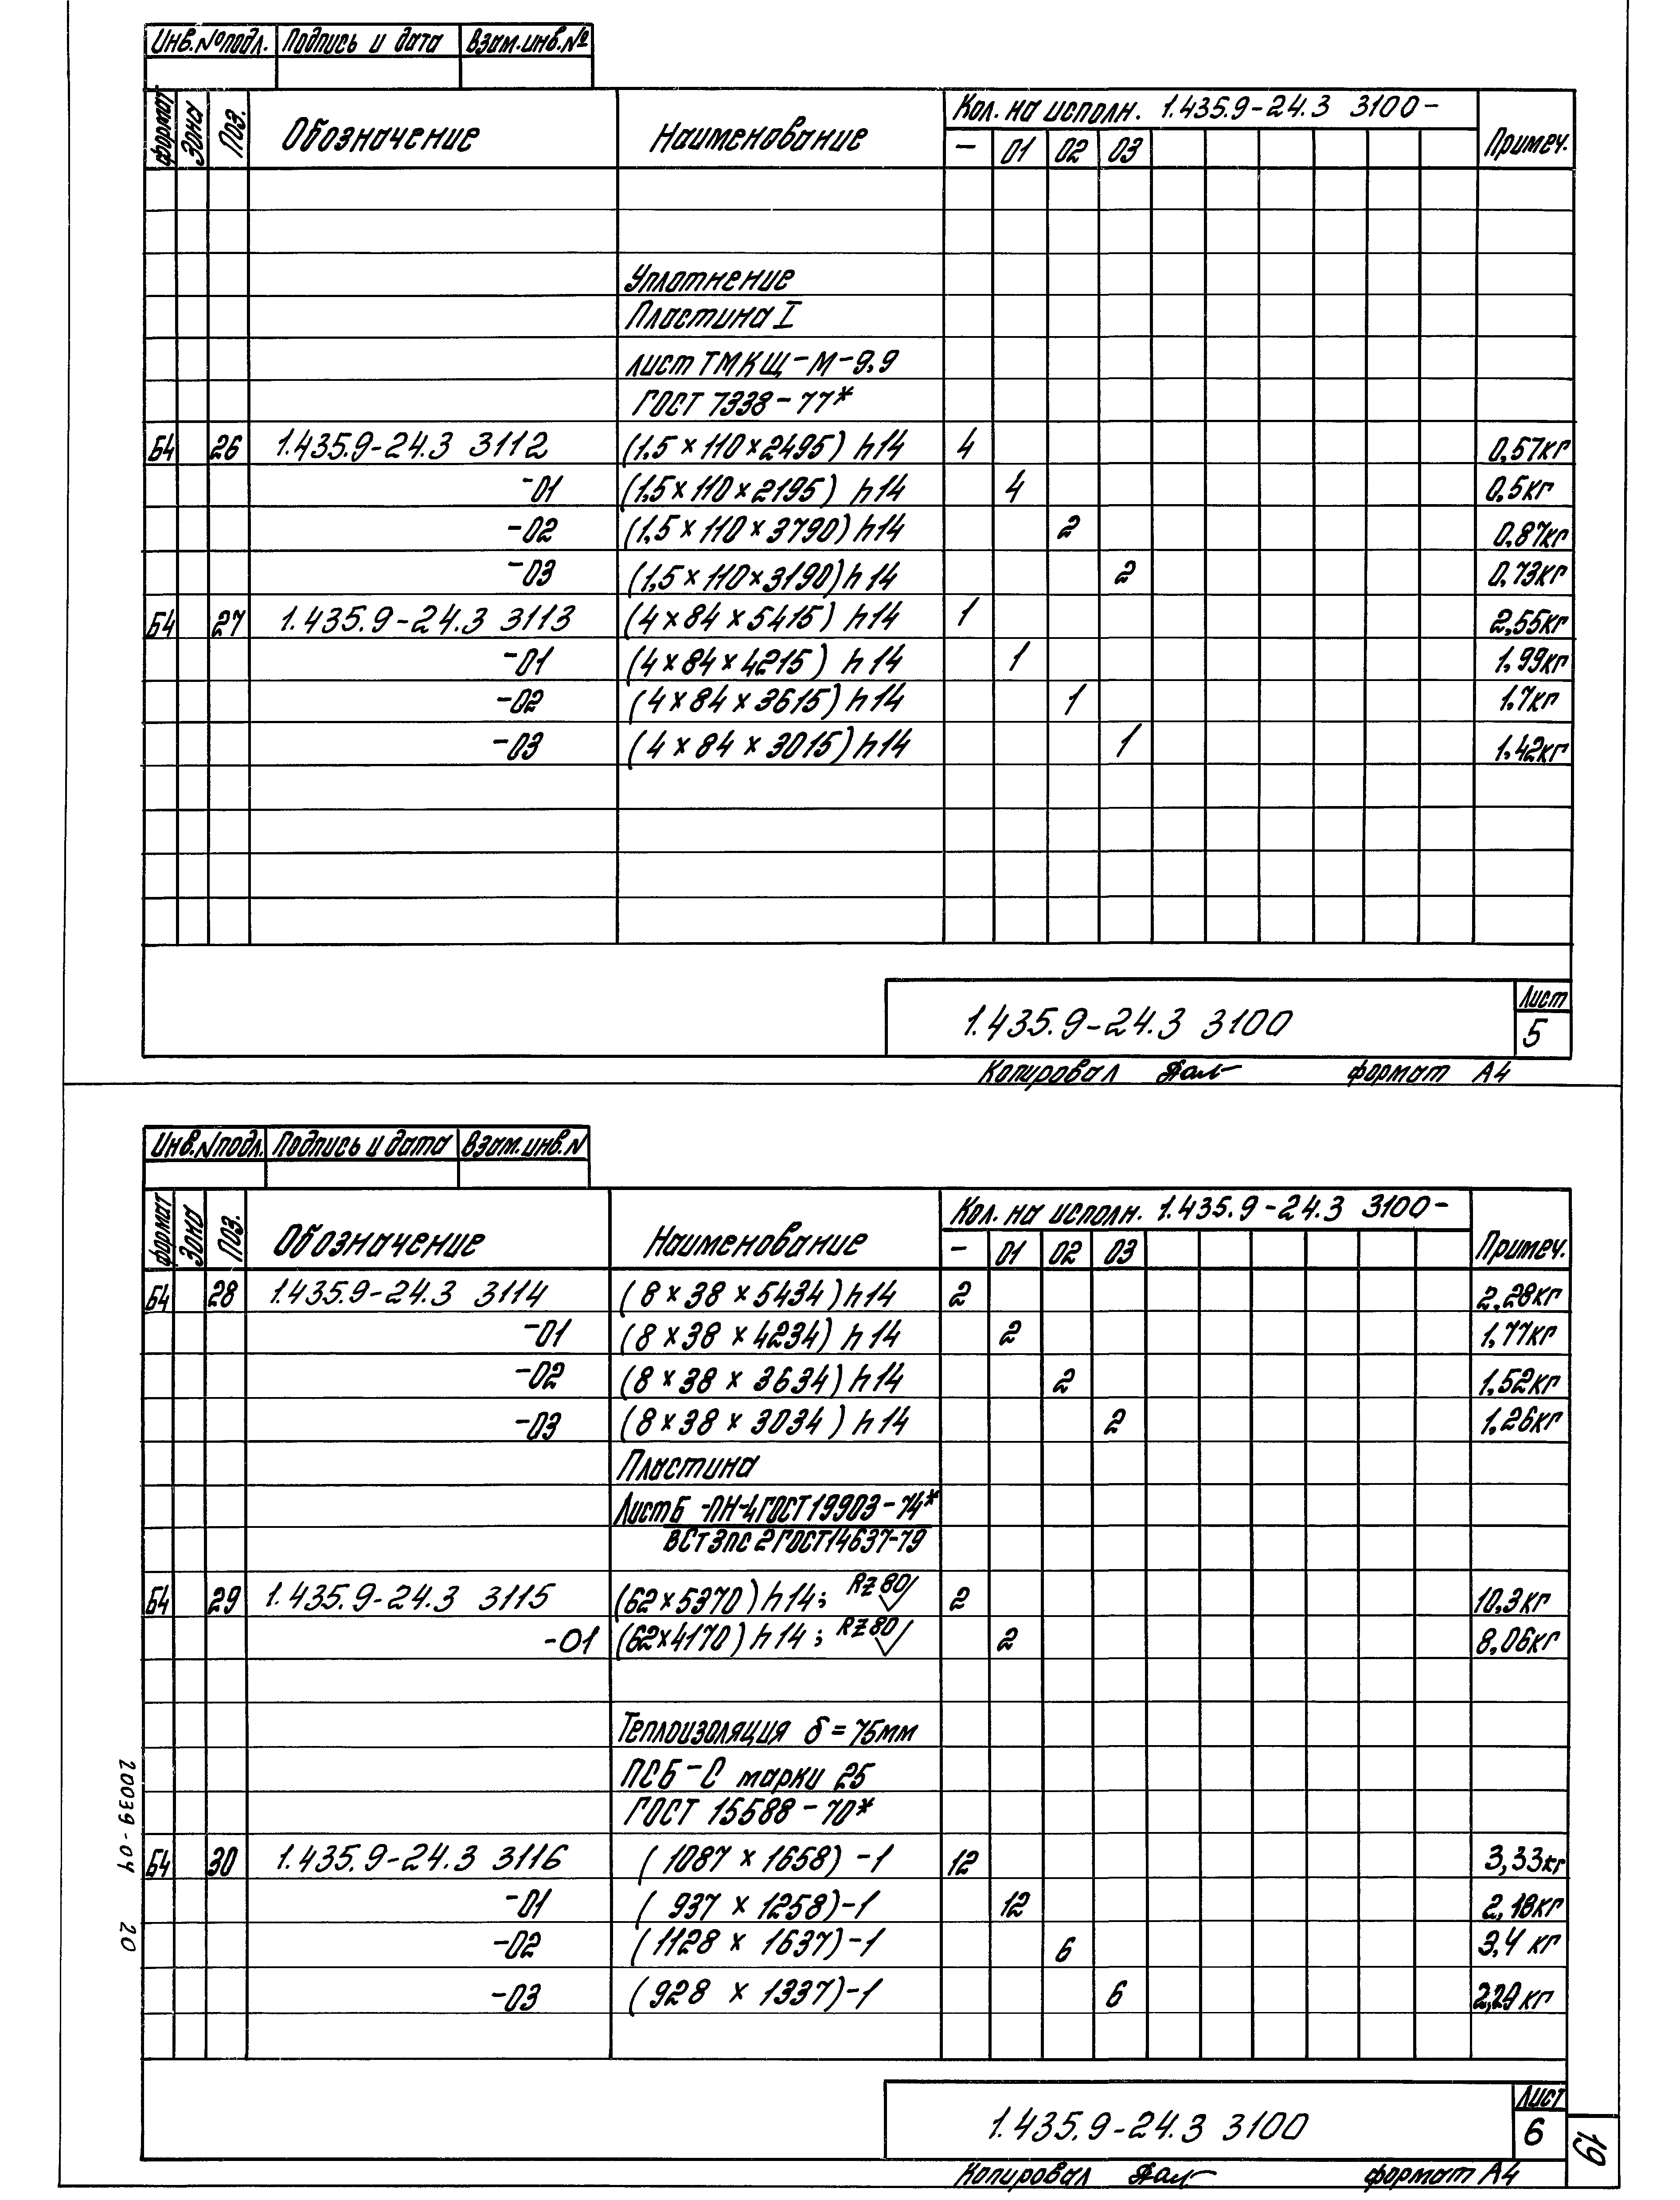 Инв.№подл. Подпись и дата Взам.инв.№
формат Зона Поз. Обозначение Наименование Кол. на исполн. 1.435.9-24.3 3100- Примеч.
– 01 02 03
Уплотнение
Пластина I
лист ТМКЩ-М-9,9
ГОСТ 7338-77*
Б4 26 1.435.9-24.3 3112 (1.5×110×2495) h14 4 0,57кг
-01 (1,5×110×2195) h14 4 0,5кг
-02 (1,5×110×3790) h14 2 0,87кг
-03 (1,5×110×3190) h14 2 0,73кг
Б4 27 1.435.9-24.3 3113 (4×84×5415) h14 1 2,55кг
-01 (4×84×4215) h14 1 1,99кг
-02 (4×84×3615) h14 1 1.7кг
-03 (4×84×3015) h14 1 1,42кг
1.435.9-24.3 3100 Лист
5
Копировал формат А4
Инв.Nподл. Подпись и дата Взам.инв.N
формат Зона Поз. Обозначение Наименование Кол. на исполн. 1.435.9-24.3 3100- Примеч.
– 01 02 03
Б4 28 1.435.9-24.3 3114 (8×38×5434) h14 2 2,28кг
-01 (8×38×4234) h14 2 1,77кг
-02 (8×38×3634) h14 2 1,52кг
-03 (8×38×3034) h14 2 1,26кг
Пластина
Лист Б-ПН-4 ГОСТ 19903-74*
ВСт3пс2 ГОСТ 14637-79
Б4 29 1.435.9-24.3 3115 (62×5370) h14; RZ80 2 10,3кг
-01 (62×4170) h14; RZ80 2 8,06кг
Теплоизоляция δ=75мм
ПСБ-С марки 25
ГОСТ 15588-70*
Б4 30 1.435.9-24.3 3116 (1087×1658)-1 12 3,33кг
-01 (937×1258)-1 12 2,18кг
-02 (1128×1637)-1 6 3,4 кг
-03 (928×1337)-1 6 2,29 кг
20039-04 20
1.435.9-24.3 3100 Лист
6
19
Копировал формат А4